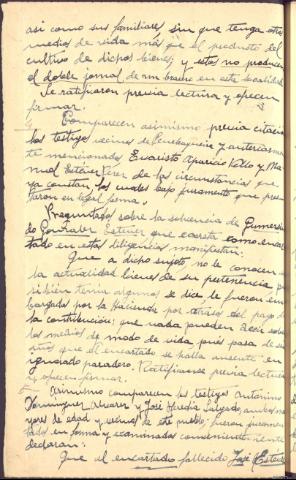 asi como sus familiares sin que tenga otros
medios de vida más que el producto del
cultivo de dichos bienes y estos no producen
el doble jornal de un bracero en esta localidad
Se ratificaron previa lectura y ofrecen
firmar.
Comparecen asimismo previa citación
los testigos vecinos de y anteriormen
te mencionados Evaristo Aparicio Vello y Ma
nuel Estévez de las circunstancias que
ya constan, los cuales bajo juramento que pres
taron en legal forma.
Preguntados sobre la solvencia de Gumersin
do González Estévez que aparece como encar
tado en estas diligencias manifiestan:
Que a dicho sujeto no le conocen en
la actualidad bienes de su pertenencia, pues
si bien tenía algunos se dice le fueron em
bargados por la Hacienda por atrasos del pago de
la contribución; que nada pueden decir sobre
los medios de modo de vida pues pasa de
años que el encartado se halla ausente en
ignorado paradero. Ratifícanse previa lectura
y ofrecen firmar.
Asimismo comparecen los testigos Antonino
Domínguez Alvarez y José Heredia Salgado, ambos ma
yores de edad y vecinos de este pueblo; fueron juramen
tados en forma y examinados convenientemente
declararon:
Que el encartado fallecido José Estévez